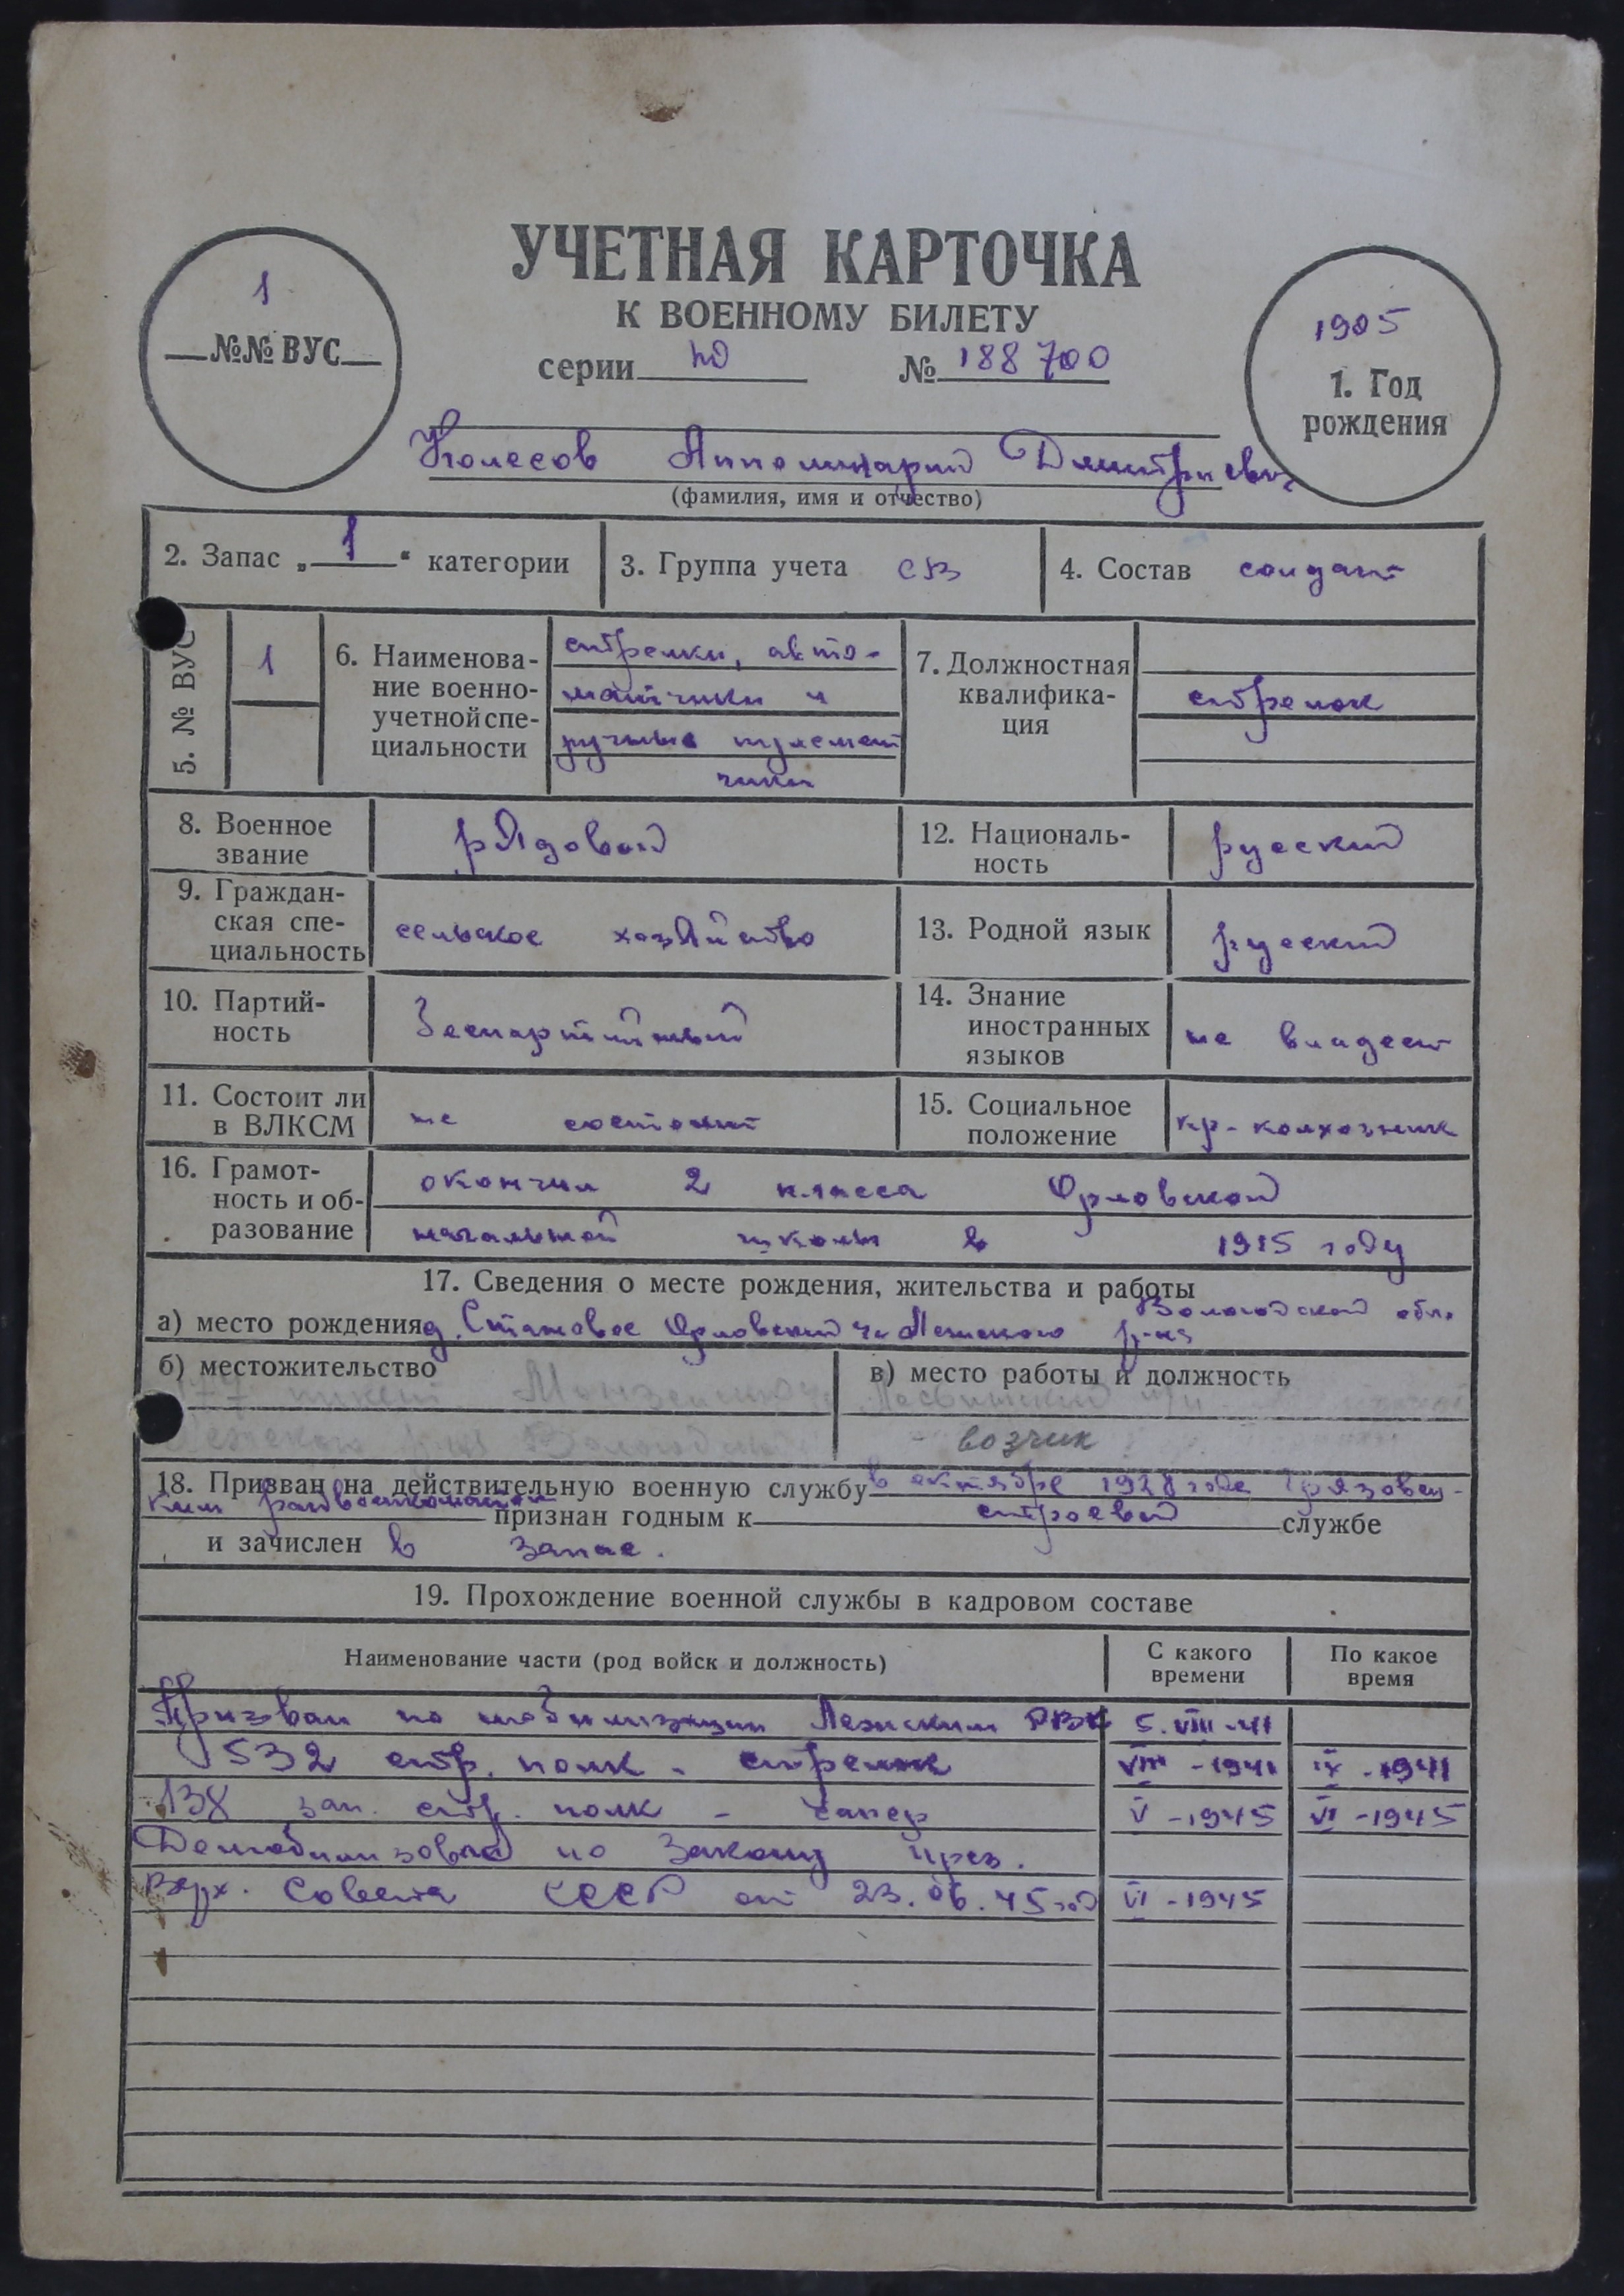 УЧЕТНАЯ КАРТОЧКА
К ВОЕННОМУ БИЛЕТУ
серии НО № 188700
1
№№ ВУС
1905
1. Год
рождения
Колесов Апполинарий Дмитриевич
(фамилия, имя и отчество)
2. Запас „ 1 “ категории
3. Группа учета СВ
4. Состав солдат
5. № ВУС
1
6. Наименова-
ние военно-
учетной спе-
циальности
стрелки, авто-
матчики и
ручные пулемет
чики
7. Должностная
квалифика-
ция
стрелок
8. Военное
звание
рядовой
12. Националь-
ность
русский
9. Граждан-
ская спе-
циальность
сельское хозяйство
13. Родной язык
русский
10. Партий-
ность
беспартийный
14. Знание
иностранных
языков
не владеет
11. Состоит ли
в ВЛКСМ
не состоит
15. Социальное
положение
кр-колхозник
16. Грамот-
ность и об-
разование
окончил 2 класса Орловской
начальной школы в 1915 году
17. Сведения о месте рождения, жительства и работы
Вологодской обл.
а) место рождения д. Становое Орловский Лежского р-на
б) местожительство
в) место работы и должность
Лежского р-на
возчик
18. Призван на действительную военную службу в октябре 1928 года Грязовец-
ким райвоенкоматом признан годным к строевой службе
и зачислен в запас.
19. Прохождение военной службы в кадровом составе
Наименование части (род войск и должность)
С какого
времени
По какое
время
Призван по мобилизации Лежским РВК 5.VIII-41
532 стр. полк - стрелок VIII-1941 IX-1941
138 зап. стр. полк - сапер V-1945 VI-1945
Демобилизован по Закону През.
Верх. Совета СССР от 23.06.45 год VI-1945